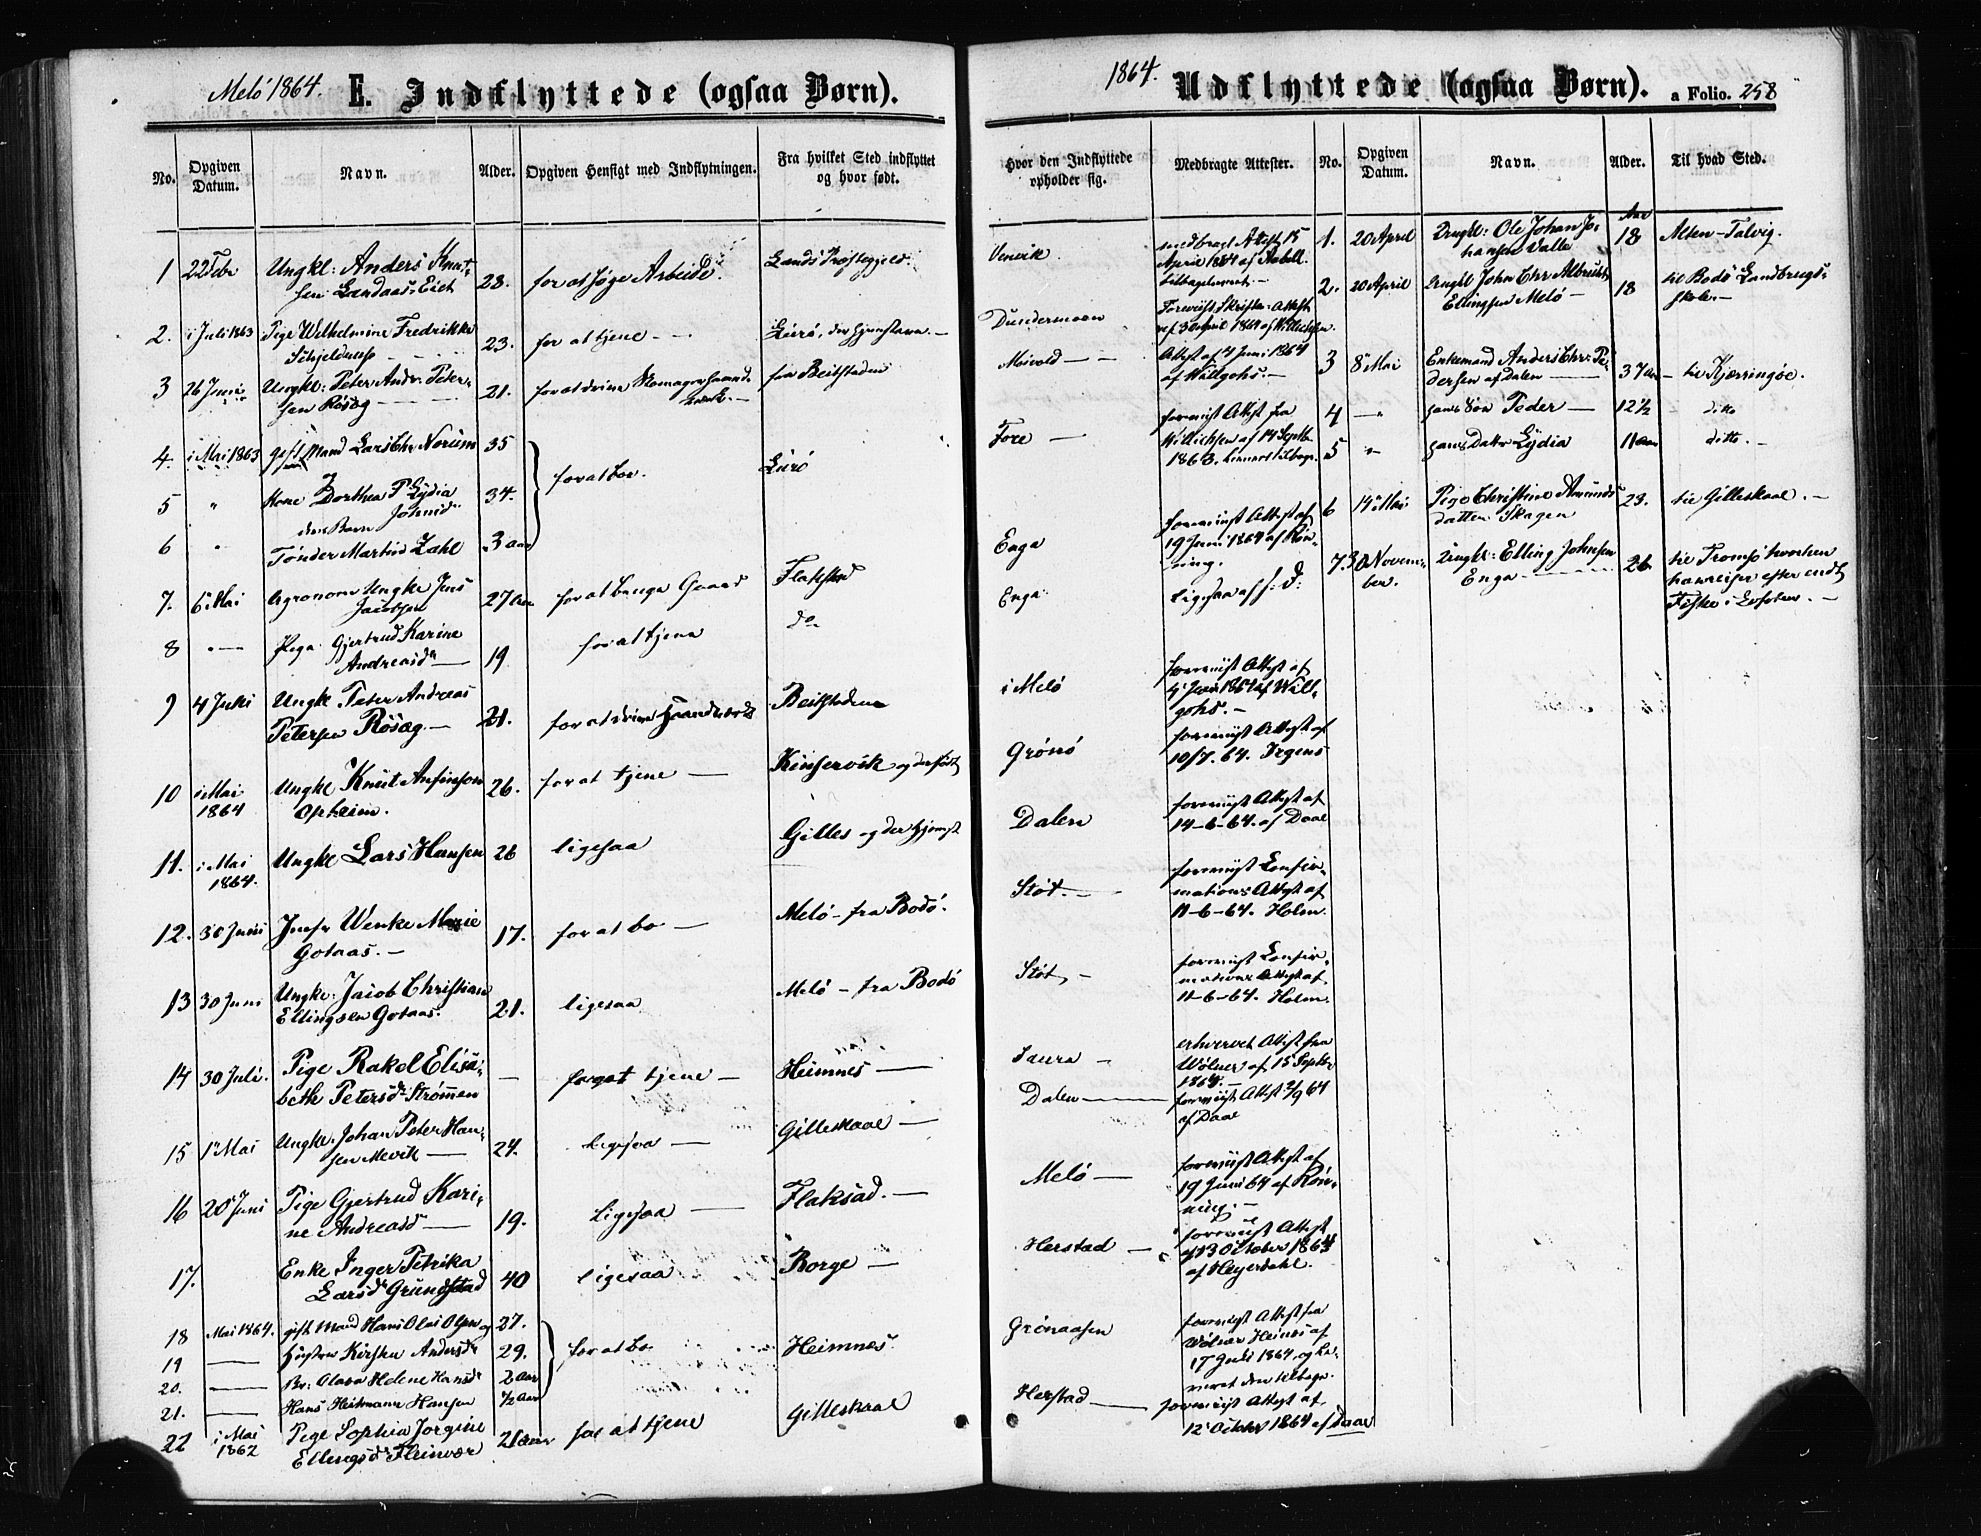 Melö 1864.
E. Indflyttede (ogsaa Børn).
No.
Opgiven Datum.
Navn.
Alder.
Opgiven Hensigt med Indflytningen.
Fra hvilket Sted indflyttet og hvor født.
1 22 Febr Ungkl: Anders Knut- 28. for at søge Arbeide. Lands Præstegjeld
sen Landaas-Eiet
2. i Juli 1863 Pige Wilhelmine Fredrikke 23. for at tjene - Lurö, der hjemstavn. -
Schjelderup
3 26 Juni Ungkl: Peter Andr: Peter- 21. for at drive fra Beitstaden
sen Rösæg
4. i Mai 1863 gift Mand Lars Chr Norum 35 for at boe. Lurö
5 " Kone Dorthea P Lydia 34.
deres Barn
6 " Tönder Martin Zahl 3 aar
7. 6 Mai Agronom Ungkl Jens 27 Aar for at bruge Gaard Flakstad
Jacobsen
8 " — Pige Gjertrud Karine 19 for at tjene do
Andreasdr
9 4 Juli Ungkl Peter Andreas 21. for at drive Haandværk Beitstaden
Petersen Rösæg. —
10 i Mai 1864 Ungkl Knut Anfinson 26. for at tjene — Kinservik og der født
Opheim.
11. i Mai 1864. Ungkl Lars Hansen 26 ligesaa Gilles og der hjemst
12. 30 Juni Jmfr Wenke Marie 17. for at bo — Melö - fra Bodö.
Gotaas. —
13 30 Juni Ungkl: Jacob Christian 21. ligesaa Melö - fra Bodö
Ellingsen Gotaas.
14 30 Juli. Pige Rakel Elisa- — for at tjene — Heimnes —
beth Petersdr Strömmen
15 1 Mai Ungkl. Johan Peter Han- 24. ligesaa — Gilleskaal —
sen Mevik —
16 20 Juni Pige Gjertrud Kari- 19. ligesaa — Flakstad. —
ne Andreasd —
17. Enke Inger Petrika 40 ligesaa Borge —
Larsdr Grundstad
18 Mai 1864. gift Mand Hans Olai Olsen og 27. for at bo Heimnes.
19 — Hustru Kirsten Andersdr 29.
20. — Bn: Olava Helene Hansdr 2 aar
21. — Hans Heitmann Hansen ½ aar
22 i Mai 1862 Pige Sophia Jorgine 21 aar for at tjene Gilleskaal
Ellingsdr Fleinvær
1864.
Udflyttede (ogsaa Børn).
a Folio. 258
Hvor den Indflyttede opholder sig.
Medbragte Attester.
No.
Opgiven Datum.
Navn.
Alder.
Til hvad Sted.
Venvik medbragt Attest 15
April 1864 af
tilbageleveret. —
Dundermoen Forevist Attest
af 30 April 1864 af
Meivold — Attest af 4 Juni 1864
af Willgohs. —
Fore — forevist Attest fra
af 14 Septbr
1863.
Enga forevist Attest af
19 Juni 1864 af Rön-
ning.
Enga Ligesaa af s: D:
i Melö forevist Attest af
4 Juni 1864 af Will-
gohs. —
Grönö forevist Attest af
10/7. 64. Irgens
Dalen forevist Attest af
14-6-64. af Daae
Stöt. — forevist Confir-
mations Attest af
11-6-64. Holm.
Stöt, — forevist Confir-
mations Attest af
11-6-64. Holm.
Saura — erhvervet Attest fra
Wölner af 15 Septbr
1864. —
Dalen — forevist Attest 2/9 64
af Daae
Melö — forevist Attest af
19 Juni 64 af Rön-
ning. —
Herstad — forevist Attest
af 13 October 1864
af Heyerdahl.
Grönaasen forevist Attest fra
Wölner Heimnes af
17 Juli 1864, og le-
veret den tilbage.
Herstad — forevist Attest af
12 October 1864 af Daae
1. 20 April Ungkl: Ole Johan Jo- Aar 18 Alten-Talvig.
hansen Valle
2. 20 April Ungkl John Chr Albrigt 18 til Bodö Landbrugs-
Ellingsen Melö — skole. —
3 8 Mai Enkemand Anders Chr: Pe- 37 Aar — til Kjerringöe.
dersen af Dalen —
4 — " hans Sön Peder — 12½ ditto
5 " hans Datter Lydia 11 Aar ditto. —
6 14 Mai Pige Christine Amunds- 23. til Gilleskaal. —
datter Skagen
7. 30 Novem- Ungkl: Elling Johnsen 26 til Tromsö hvorhen
ber. Enga — han reiser efter endt
Fiske i Lofoten. —